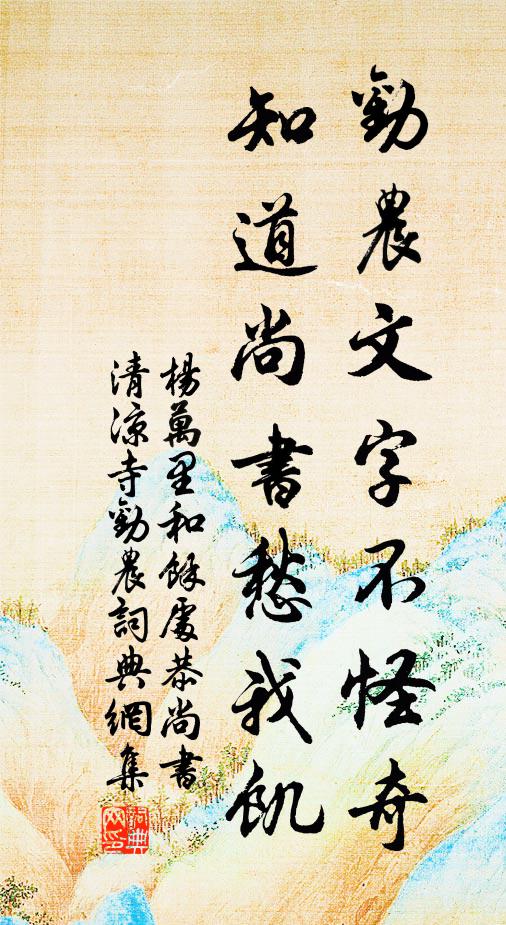 勸農文字不怪奇
知道尚書愁我飢
楊萬里和餘處恭尚書
清凉寺勸農詞典網集
詞典网印